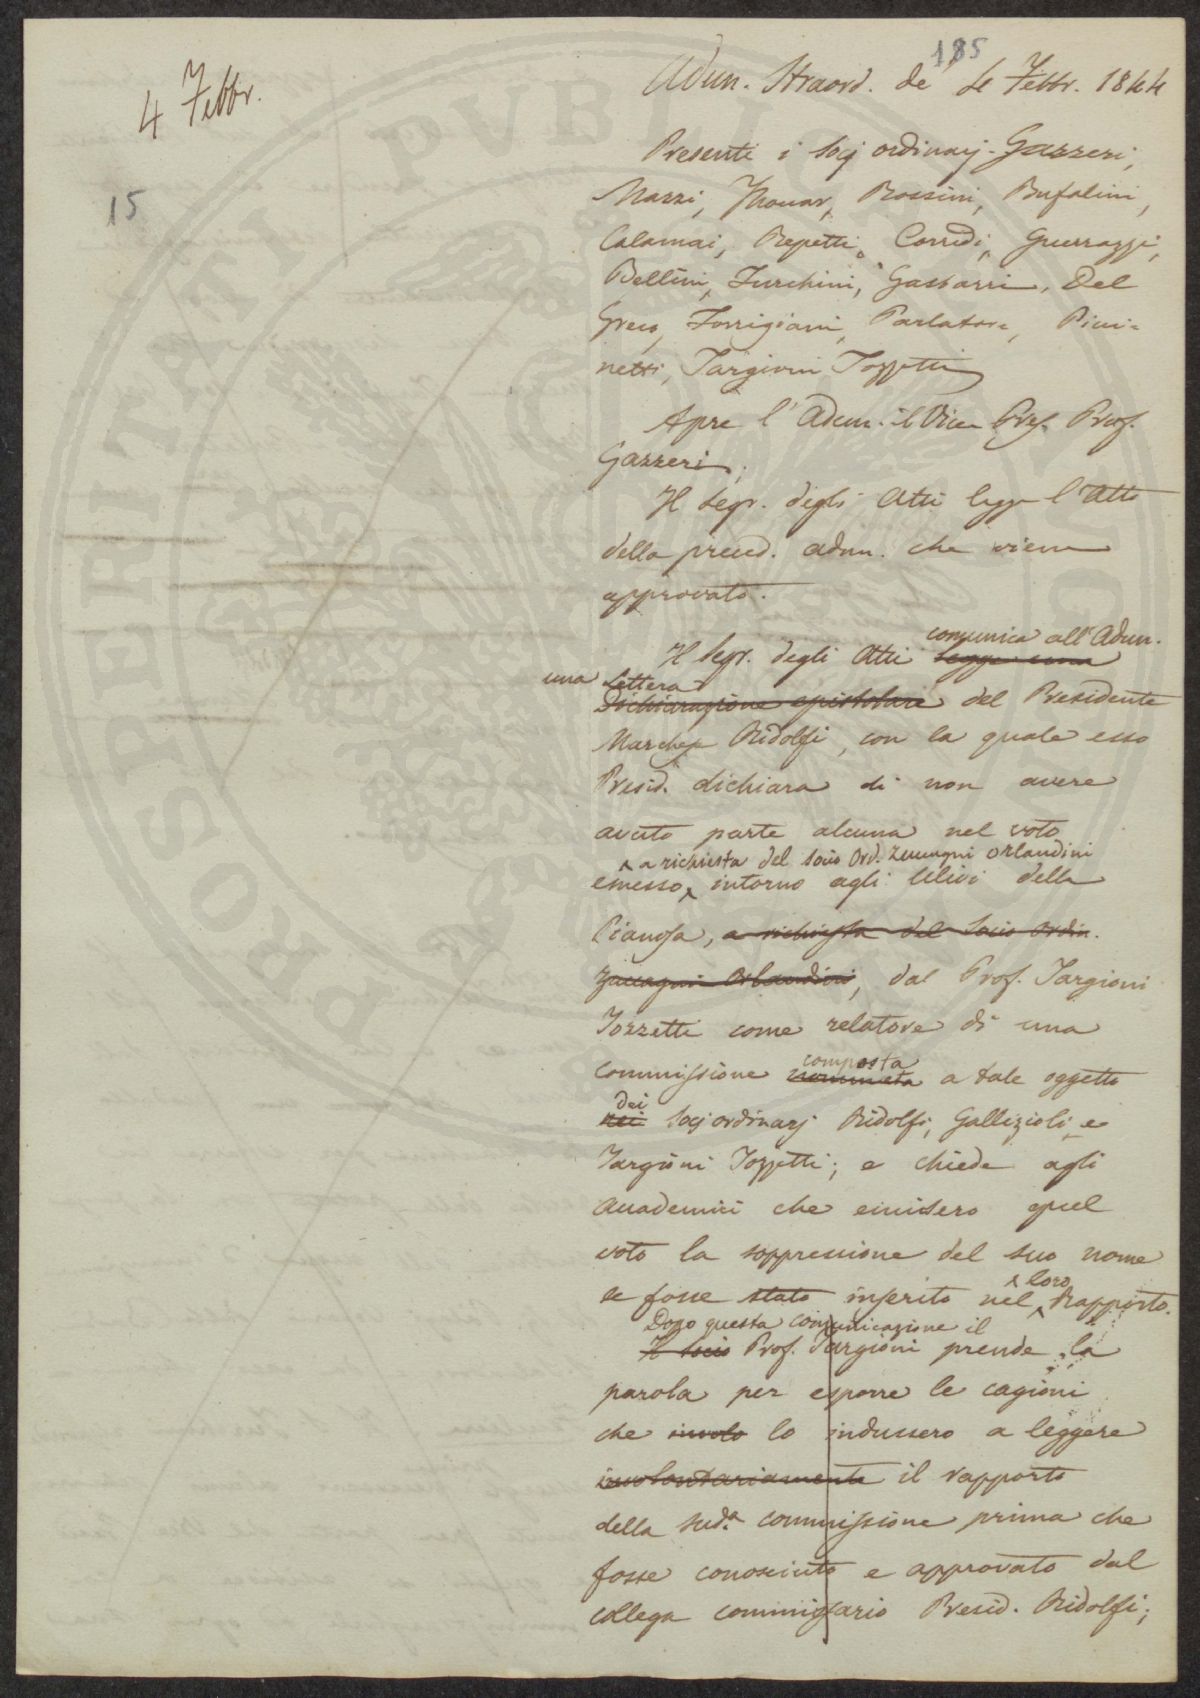 185
4 Febbr.
Adun. Straord. de' 4 Febbr. 1844
15
Presenti i Socj ordinarj. Gazzeri,
Mazzi, Thouar, Rossini, Bufalini,
Calamai, Repetti, Corridi, Guerrazzi,
Bellini, Turchini, Gasbarri, Del
Greco, Torrigiani, Parlatore,
Targioni Tozzetti
Apre l'Adun. il Vice Pres. Prof.
Gazzeri.
Il Segr. degli Atti legge l'Atto
della preced. adun. che viene
approvato.
comunica all'Adun.
Il Segr. degli Atti legge una
una Lettera
Dichiarazione epistolare del Presidente
Marchese Ridolfi, con la quale esso
Presid. dichiara di non avere
avuto parte alcuna nel voto
a richiesta del Socio Ord. Zuccagni Orlandini
emesso, intorno agli Ulivi della
Pianosa, a richiesta del Socio Ordin.
Zuccagni Orlandini, dal Prof. Targioni
Tozzetti come relatore di una
composta
Commissione nominata a tale oggetto
dei
nei Socj ordinarj Ridolfi, Gallizioli, e
Targioni Tozzetti; e chiede agli
Accademici che emisero quel
voto la soppressione del suo nome
loro
se fosse stato inserito nel Rapporto.
Dopo questa comunicazione il
Il Socio Prof. Targioni prende la
parola per esporre le cagioni
che involo lo indussero a leggere
involontariamente il rapporto
della sud.a commissione prima che
fosse conosciuto e approvato dal
collega commissario Presid. Ridolfi;
PROSPERITATI PVBLICAE